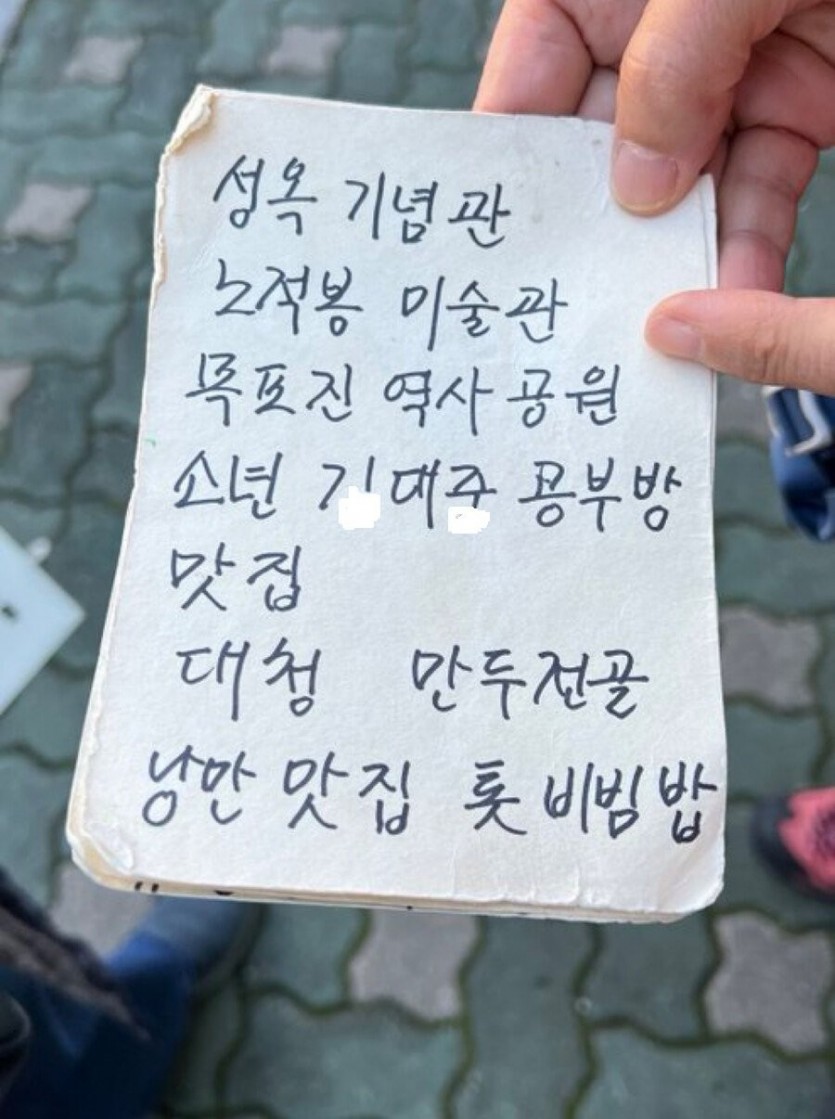 성옥 기념관
노적봉 미술관
목포진 역사공원
소년 공부방
맛집
대청 만두전골
낭만 맛집 톳비빔밥